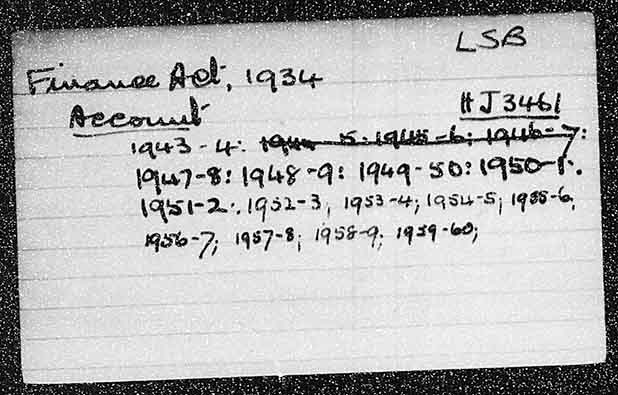 LSB
Finance Act, 1934
Account
HJ3461
1943-4: 1944-5: 1945-6: 1946-7:
1947-8: 1948-9: 1949-50: 1950-1:
1951-2: 1952-3, 1953-4; 1954-5; 1955-6,
1956-7; 1957-8; 1958-9; 1959-60;